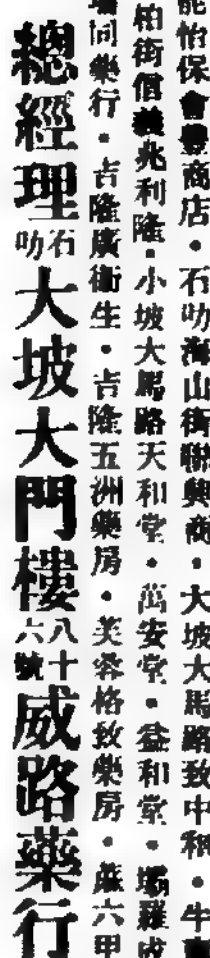 能怡保會豐商店·石叻海山街聯興商·大坡大馬路致中和·牛車
柏街信義兆利隆·小坡大馬路天和堂·萬安堂·益和堂·壩羅成
同樂行·吉隆廣衛生·吉隆五洲藥房·芙蓉格致藥房·蔴六甲
總經理石叻大坡大門樓八十六號威路藥行